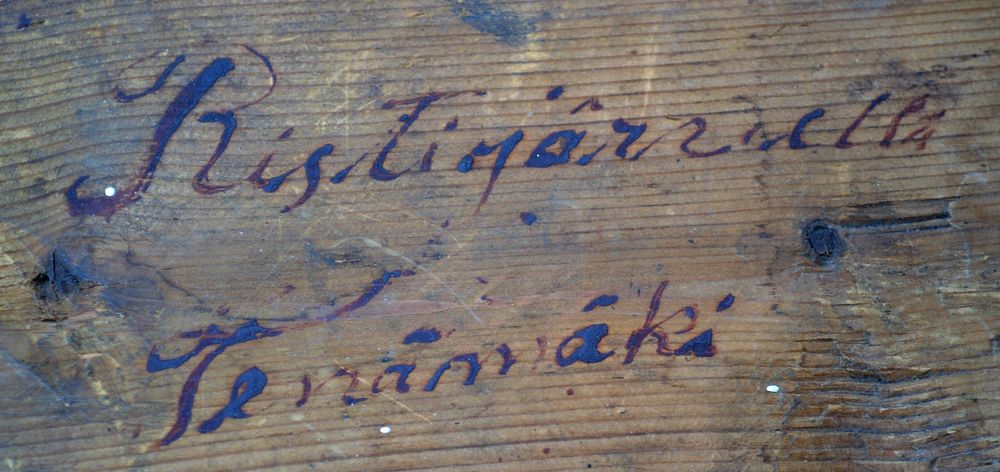 Ristijärvellä
Tenämäki